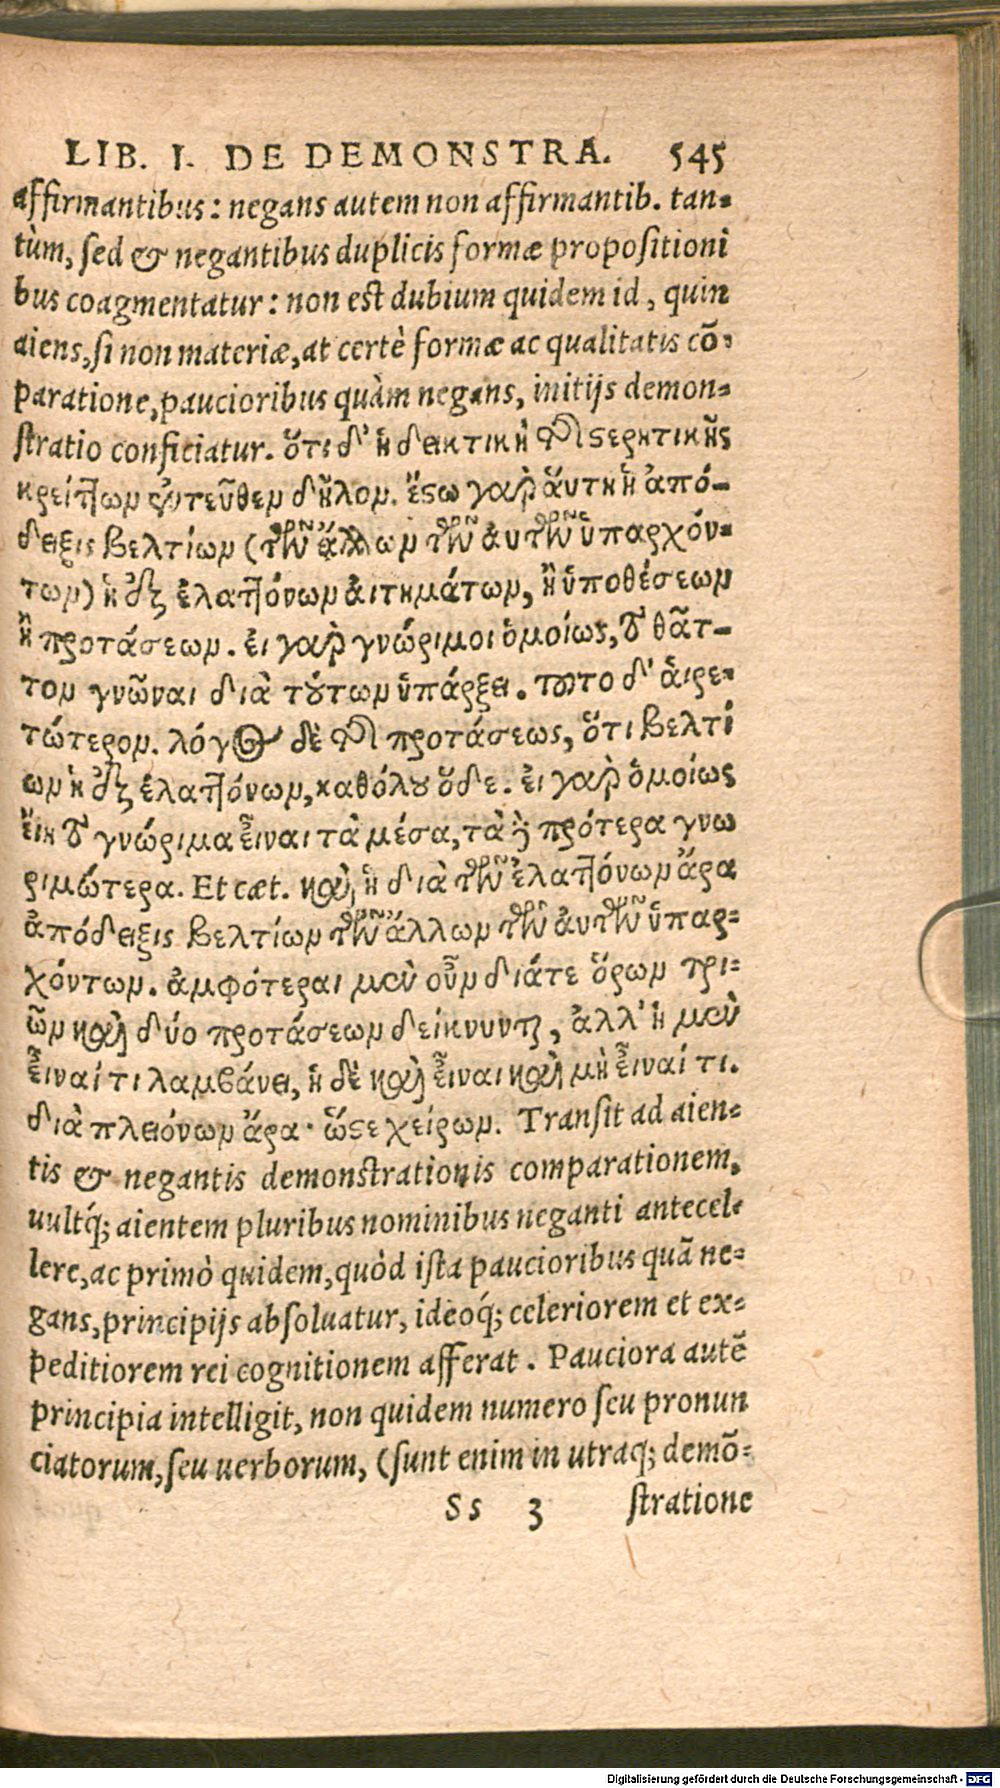 LIB. I. DE DEMONSTRA. 545
affirmantibus: negans autem non affirmantib. tan-
tùm, sed & negantibus duplicis formæ propositioni
bus coagmentatur: non est dubium quidem id, quin
aiens, si non materiæ, at certè formæ ac qualitatis cō-
paratione, paucioribus quàm negans, initijs demon-
stratio conficiatur. ὅτι δ' ἡ δεικτικὴ τῆς στερητικῆς
κρείττων ἐντεῦθεν δῆλον. ἔστω γὰρ ἅυτη ἡ ἀπό-
δειξις βελτίων (τῶν ἄλλων τῶν ἀυτῶν ὑπαρχόν-
των) ἡ ἐξ ἐλαττόνων ἀιτημάτων, ἢ ὑποθέσεων
ἢ προτάσεων. ἐι γὰρ γνώριμοι ὁμοίως, τὸ θᾶτ-
τον γνῶναι διὰ τούτων ὑπάρξει. τοῦτο δ' ἁιρε-
τώτερον. λόγος δὲ τῆς προτάσεως, ὅτι βελτί
ων ἡ ἐξ ἐλαττόνων, καθόλου ὅδε. ἐι γὰρ ὁμοίως
ἔιη τὸ γνώριμα ἔιναι τὰ μέσα, τὰ δὲ πρότερα γνω
ριμώτερα. Et cæt. καὶ, ἡ διὰ τῶν ἐλαττόνων ἄρα
ἀπόδειξις βελτίων τῶν ἄλλων τῶν ἀυτῶν ὑπαρ-
χόντων. ἀμφότεραι μὲν οὖν διάτε ὅρων τρι-
ῶν καὶ δύο προτάσεων δείκνυνται, ἀλλ' ἡ μὲν
ἔιναί τι λαμβάνει, ἡ δὲ καὶ ἔιναι καὶ μὴ ἔιναί τι.
διὰ πλειόνων ἄρα· ὥστε χείρων. Transit ad aien-
tis & negantis demonstrationis comparationem,
uultq́; aientem pluribus nominibus neganti antecel-
lere, ac primò quidem, quòd ista paucioribus quā ne-
gans, principijs absoluatur, ideoq́; celeriorem et ex-
peditiorem rei cognitionem afferat. Pauciora autē
principia intelligit, non quidem numero seu pronun
ciatorum, seu uerborum, (sunt enim in utraq; demō-
Ss 3 stratione
Digitalisierung gefördert durch die Deutsche Forschungsgemeinschaft - DFG